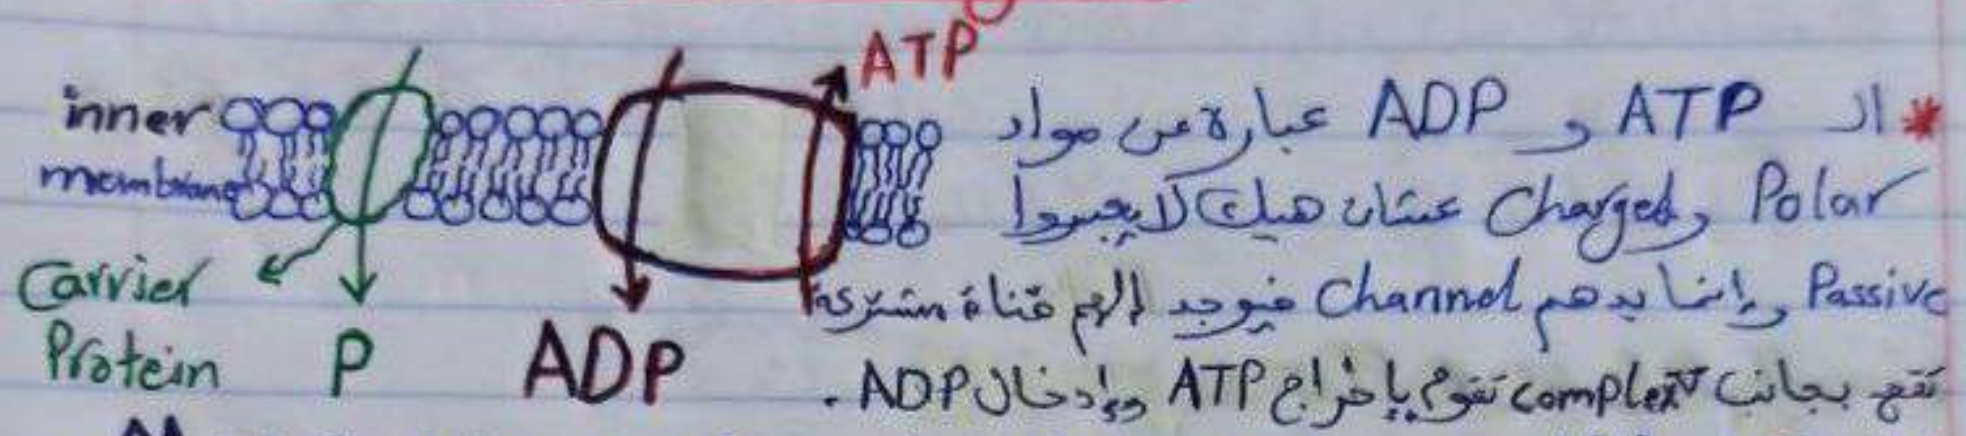 ATP
inner
membrane
Carrier
Protein
P
ADP
* الـ ATP و ADP عبارة عن مواد
Polar و Charged عشان هيك لا يعبروا
Passive وإنما بدهم Channel فيوجد إلهم قناة مشتركة
تقع بجانب complex تقوم بإخراج ATP وإدخال ADP.